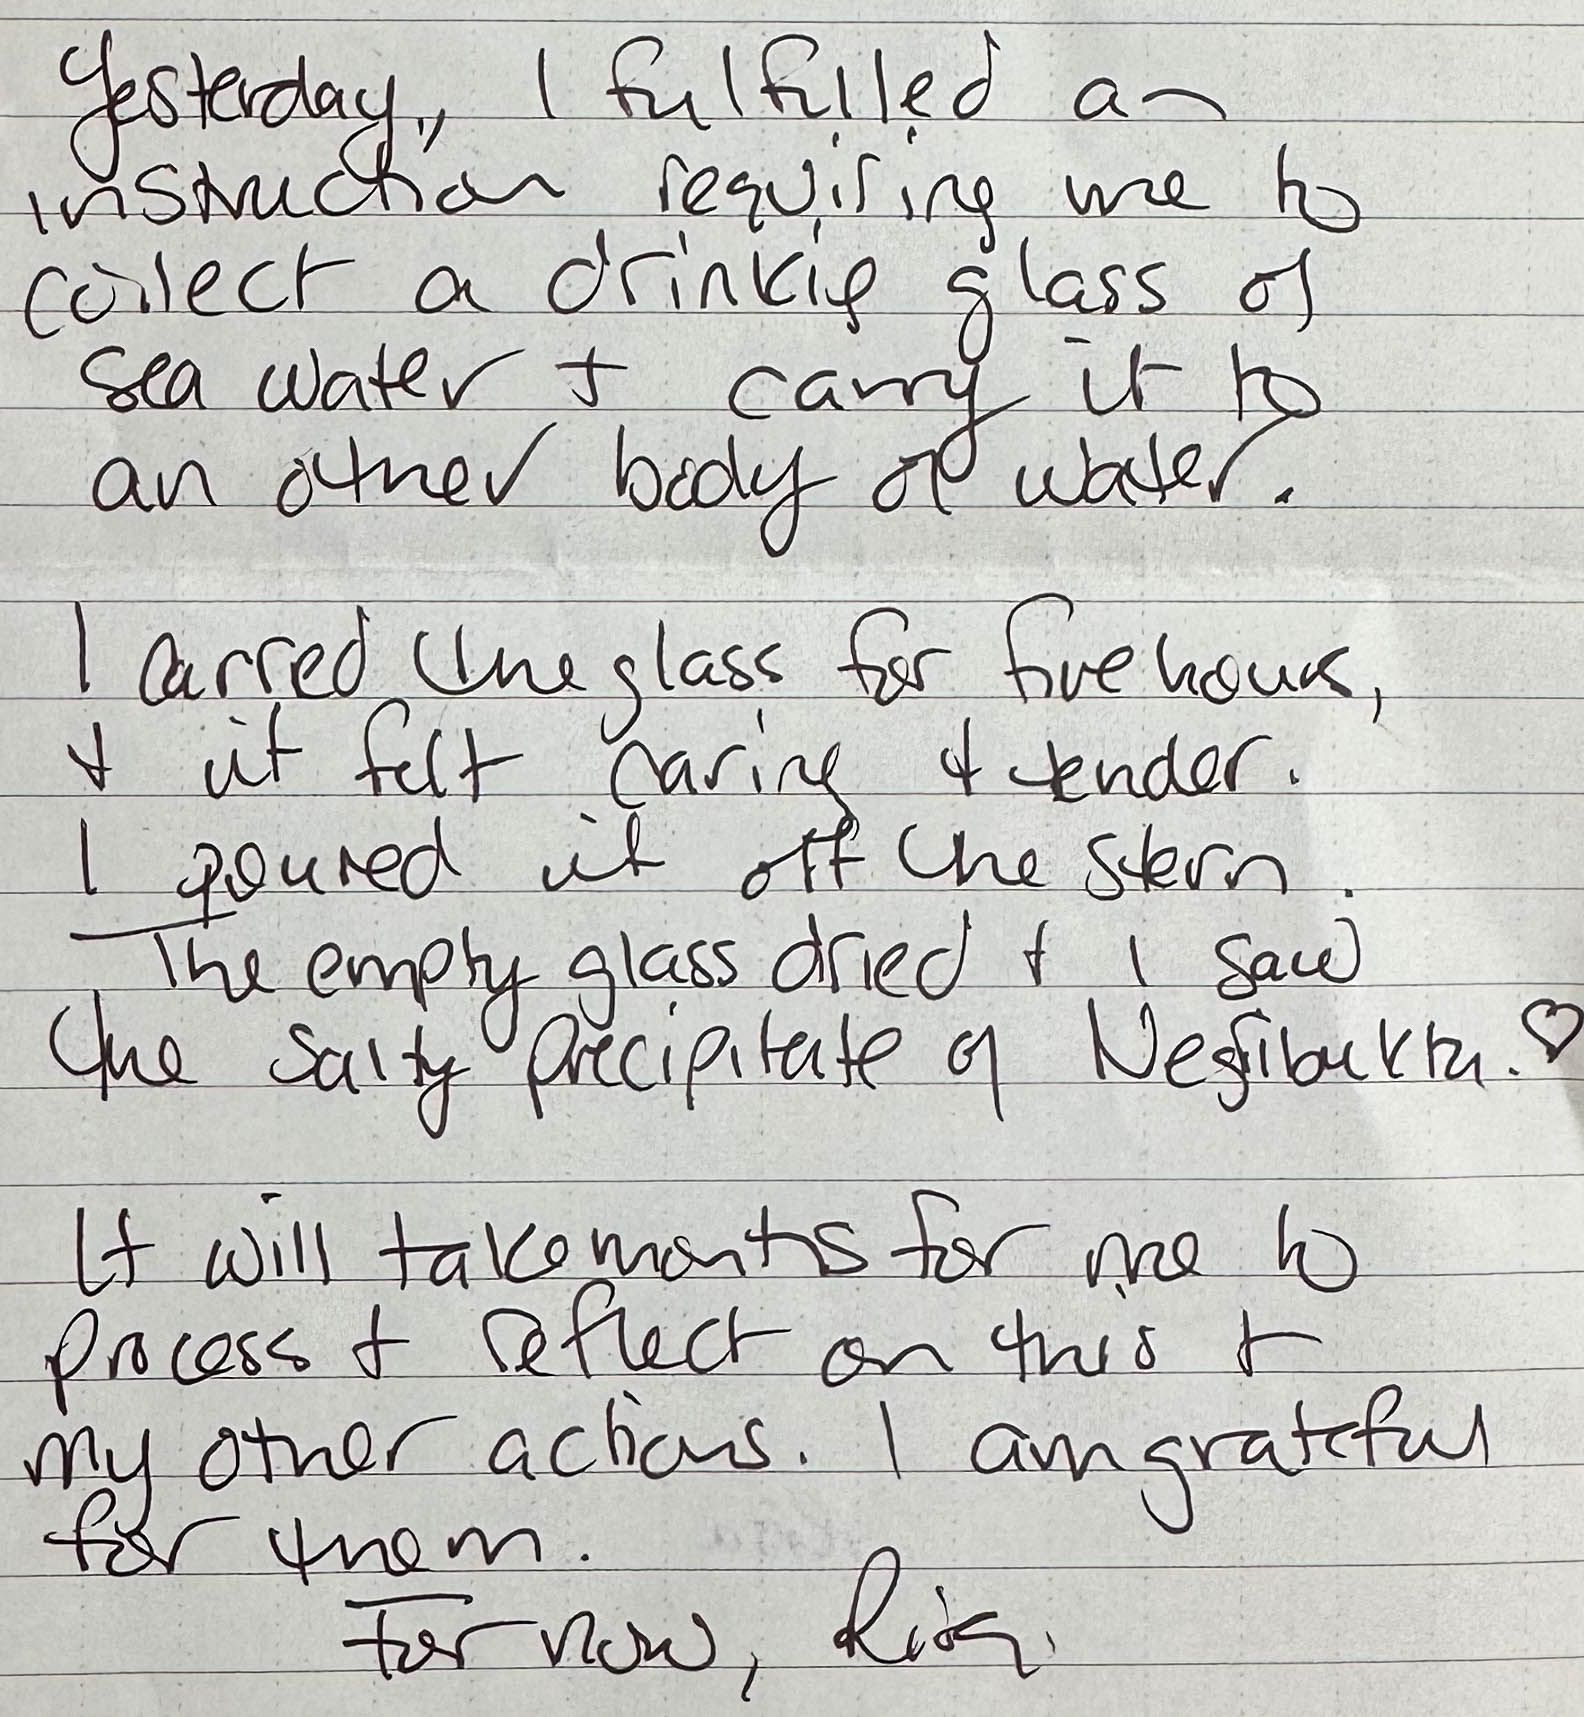 Yesterday,, I fulfilled an
instruction requiring me to
collect a drinking glass of
sea water + carry it to
an other body of water.
I carried the glass for five hours,
+ it felt caring + tender.
I poured it off the stern.
The empty glass dried + I saw
the salty precipitate of ♡
It will take months for me to
process + reflect on this +
my other actions. I am grateful
for them.
For now,